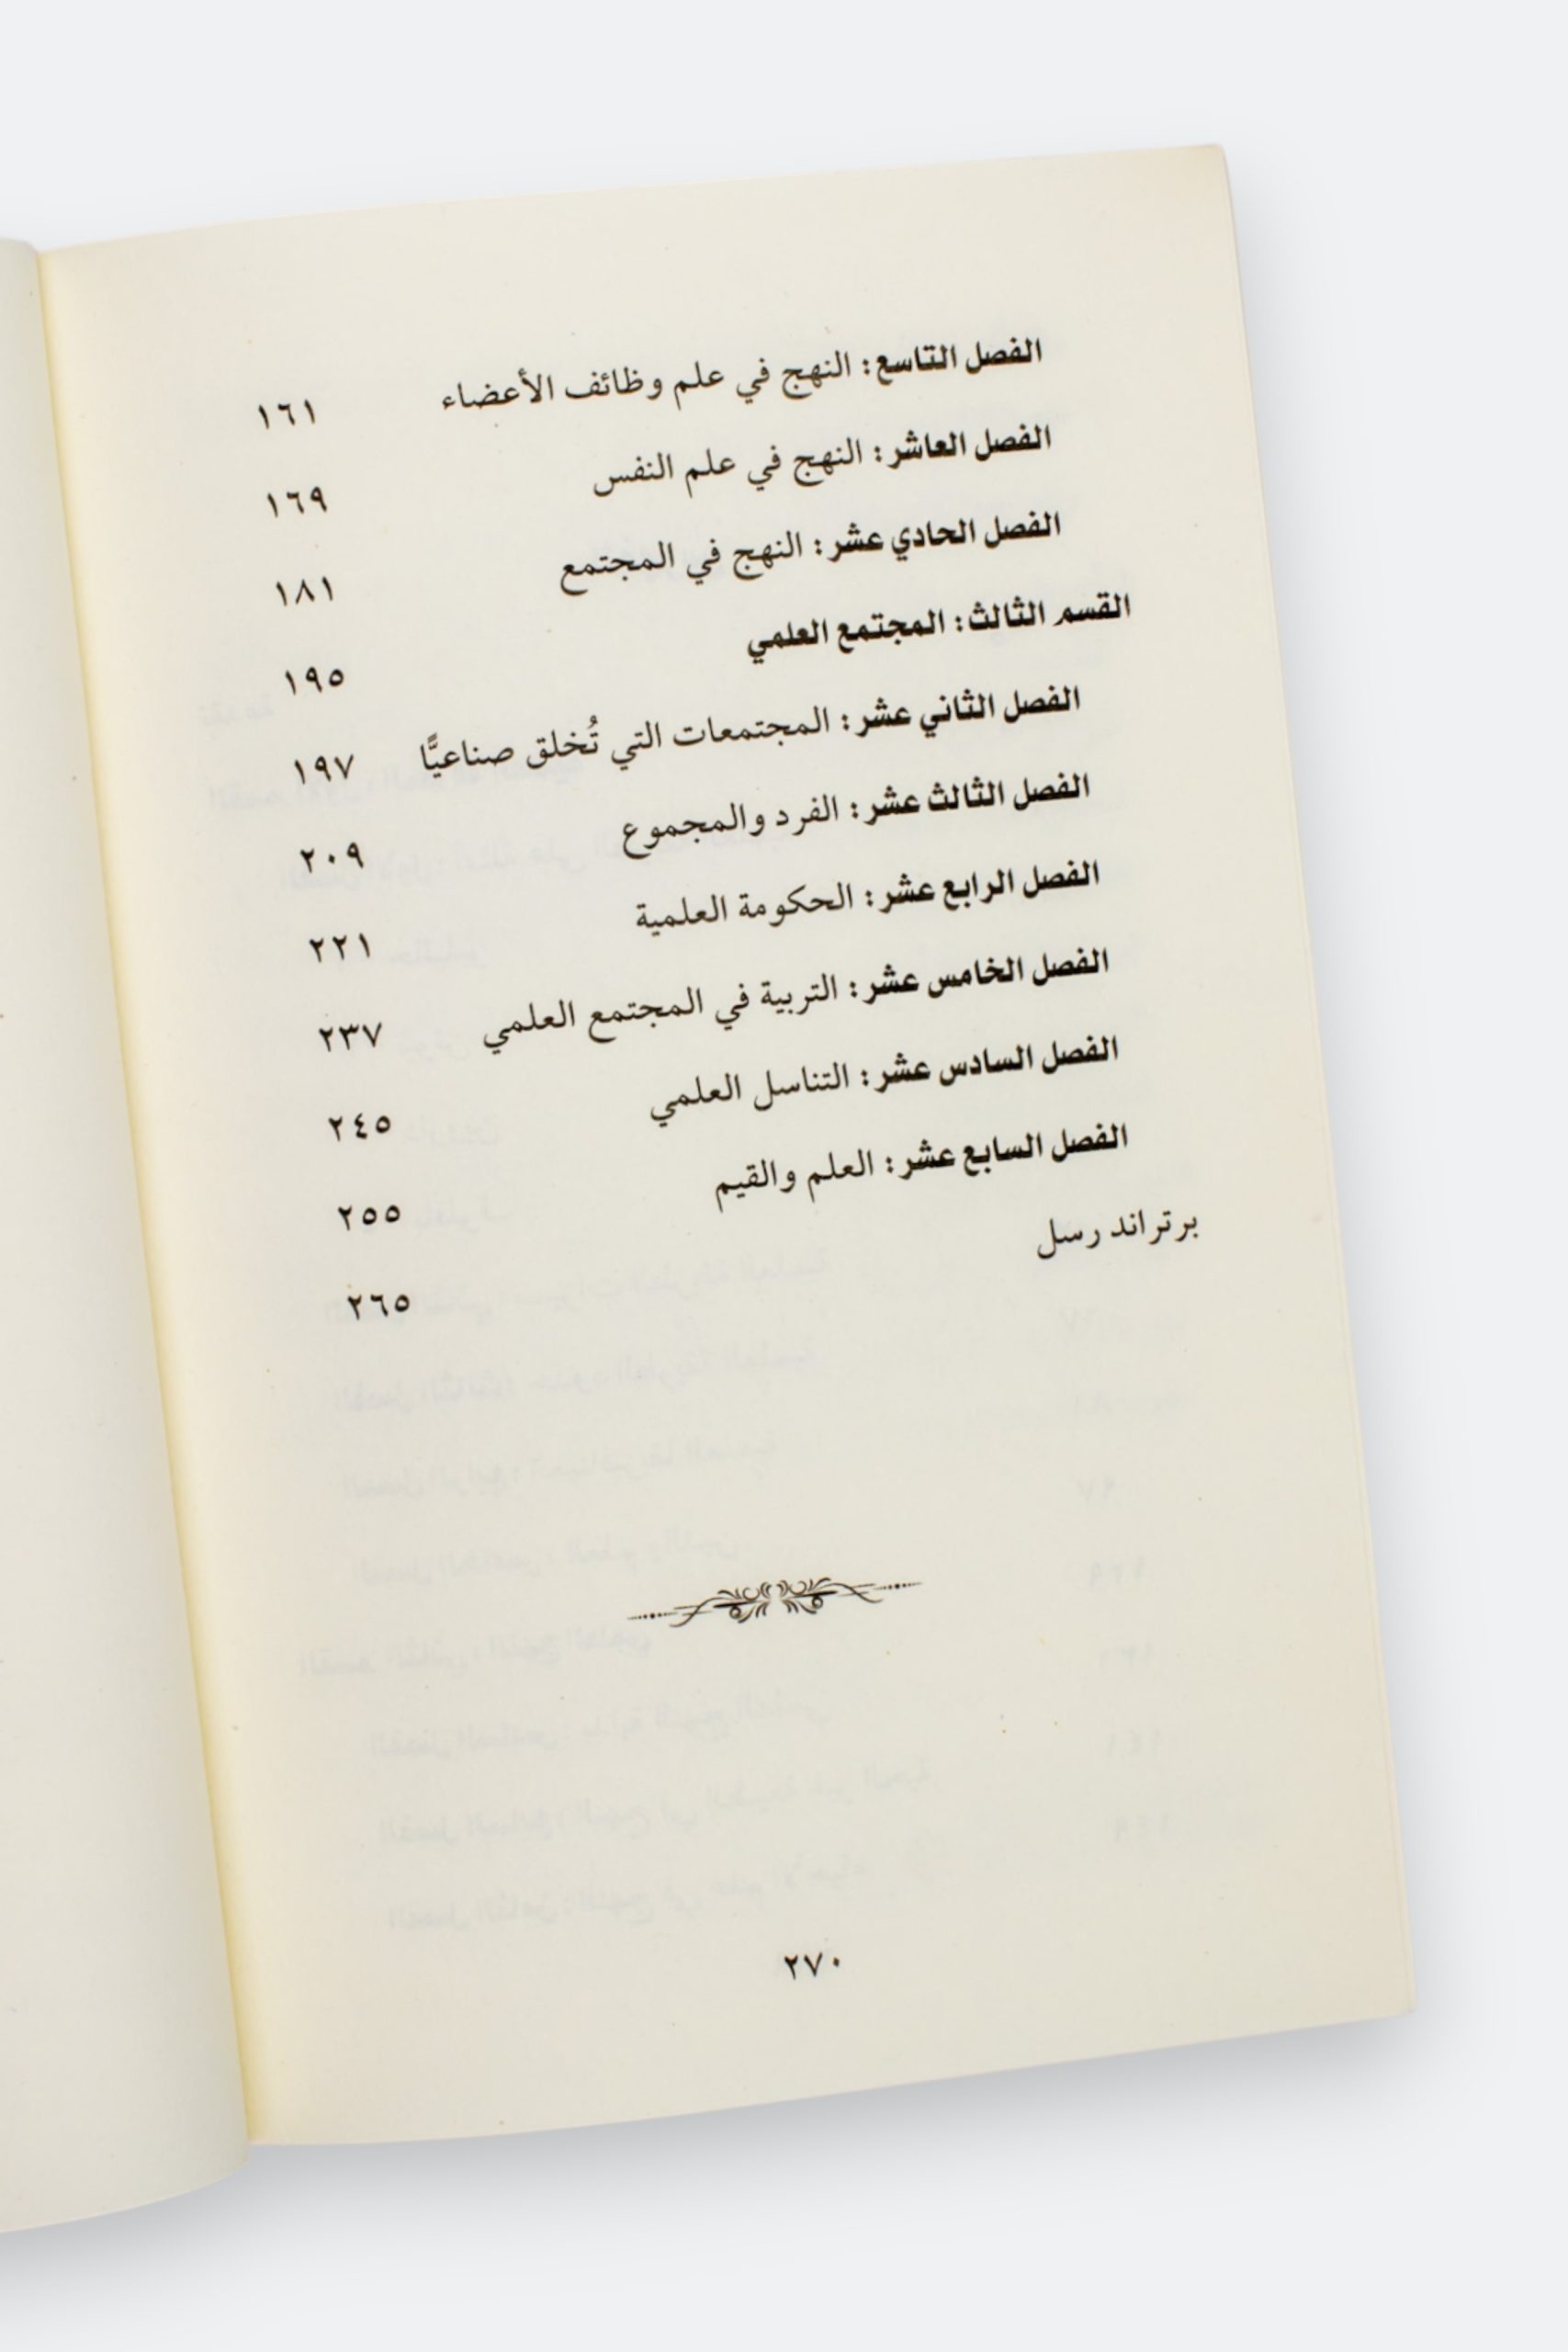 الفصل التاسع: النهج في علم وظائف الأعضاء ١٦١
الفصل العاشر: النهج في علم النفس ١٦٩
الفصل الحادي عشر: النهج في المجتمع ١٨١
القسم الثالث: المجتمع العلمي ١٩٥
الفصل الثاني عشر: المجتمعات التي تُخلق صناعيًّا ١٩٧
الفصل الثالث عشر: الفرد والمجموع ٢٠٩
الفصل الرابع عشر: الحكومة العلمية ٢٢١
الفصل الخامس عشر: التربية في المجتمع العلمي ٢٣٧
الفصل السادس عشر: التناسل العلمي ٢٤٥
الفصل السابع عشر: العلم والقيم ٢٥٥
برتراند رسل ٢٦٥
٢٧٠